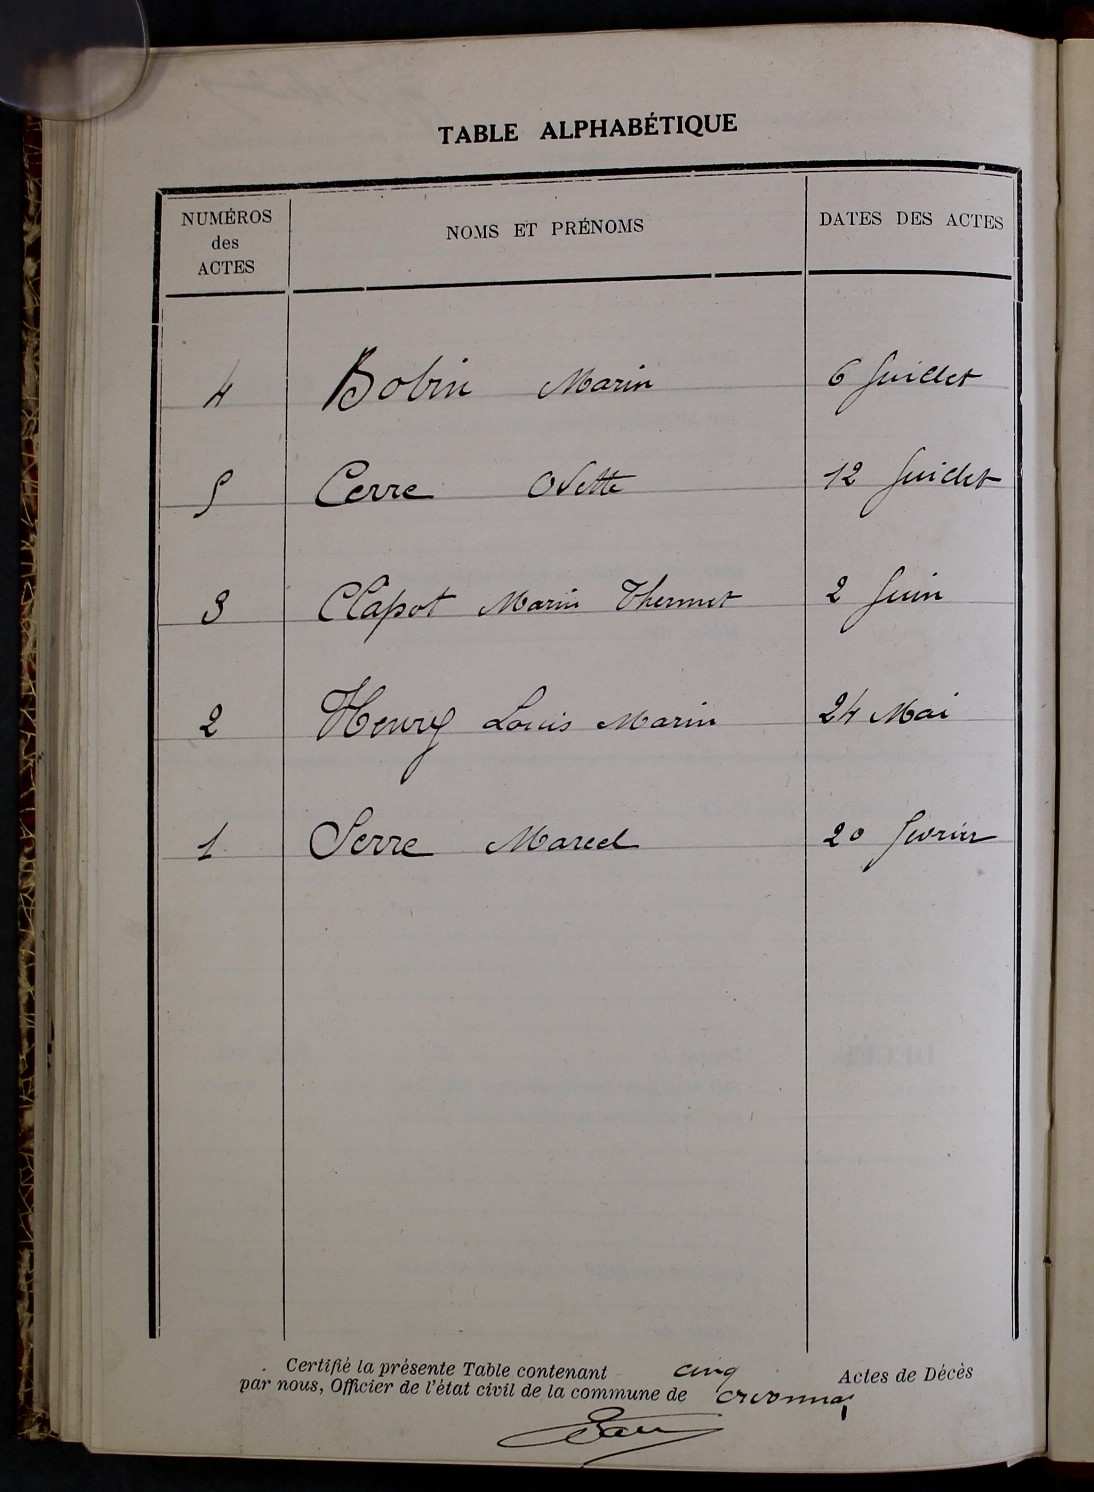 TABLE ALPHABÉTIQUE
NUMÉROS des ACTES NOMS ET PRÉNOMS DATES DES ACTES
4 Bobin Marin 6 Juillet
5 Cerre Odette 12 Juillet
3 Clapot Marin Thermet 2 Juin
2 Henry Louis Marin 24 Mai
1 Serre Marcel 20 février
Certifié la présente Table contenant cinq Actes de Décès
par nous, Officier de l'état civil de la commune de